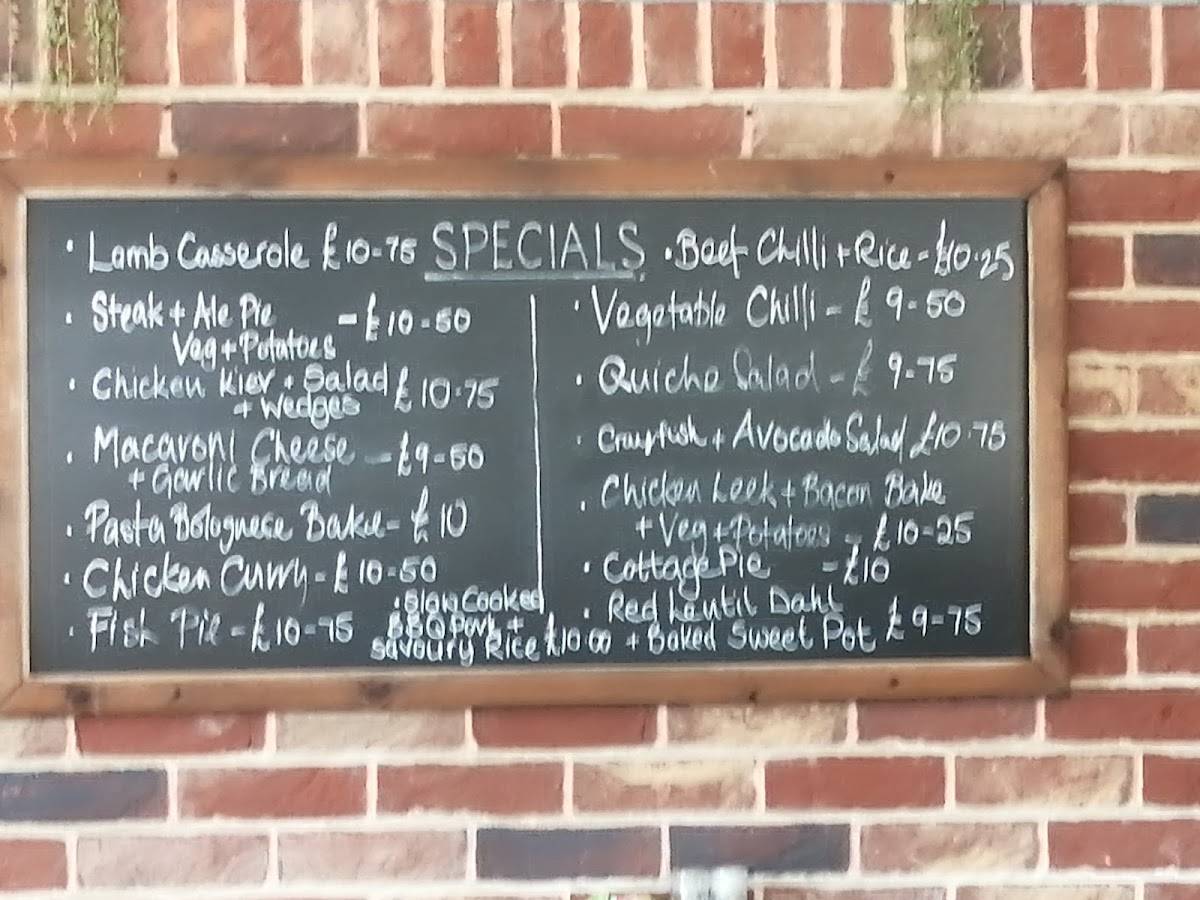 SPECIALS
· Lamb Casserole £10-75
· Steak + Ale Pie - £10-50
Veg + Potatoes
· Chicken Kiev + Salad £10-75
+ Wedges
· Macaroni Cheese - £9-50
+ Garlic Bread
· Pasta Bolognese Bake - £10
· Chicken Curry - £10-50
· Fish Pie - £10-75
· Slow Cooked
BBQ Pork +
Savoury Rice £10.00
· Beef Chilli + Rice - £10.25
· Vegetable Chilli - £9-50
· Quiche Salad - £9-75
· Crayfish + Avocado Salad £10.75
· Chicken Leek + Bacon Bake
+ Veg + Potatoes - £10-25
· Cottage Pie - £10
· Red Lentil Dahl
+ Baked Sweet Pot £9-75